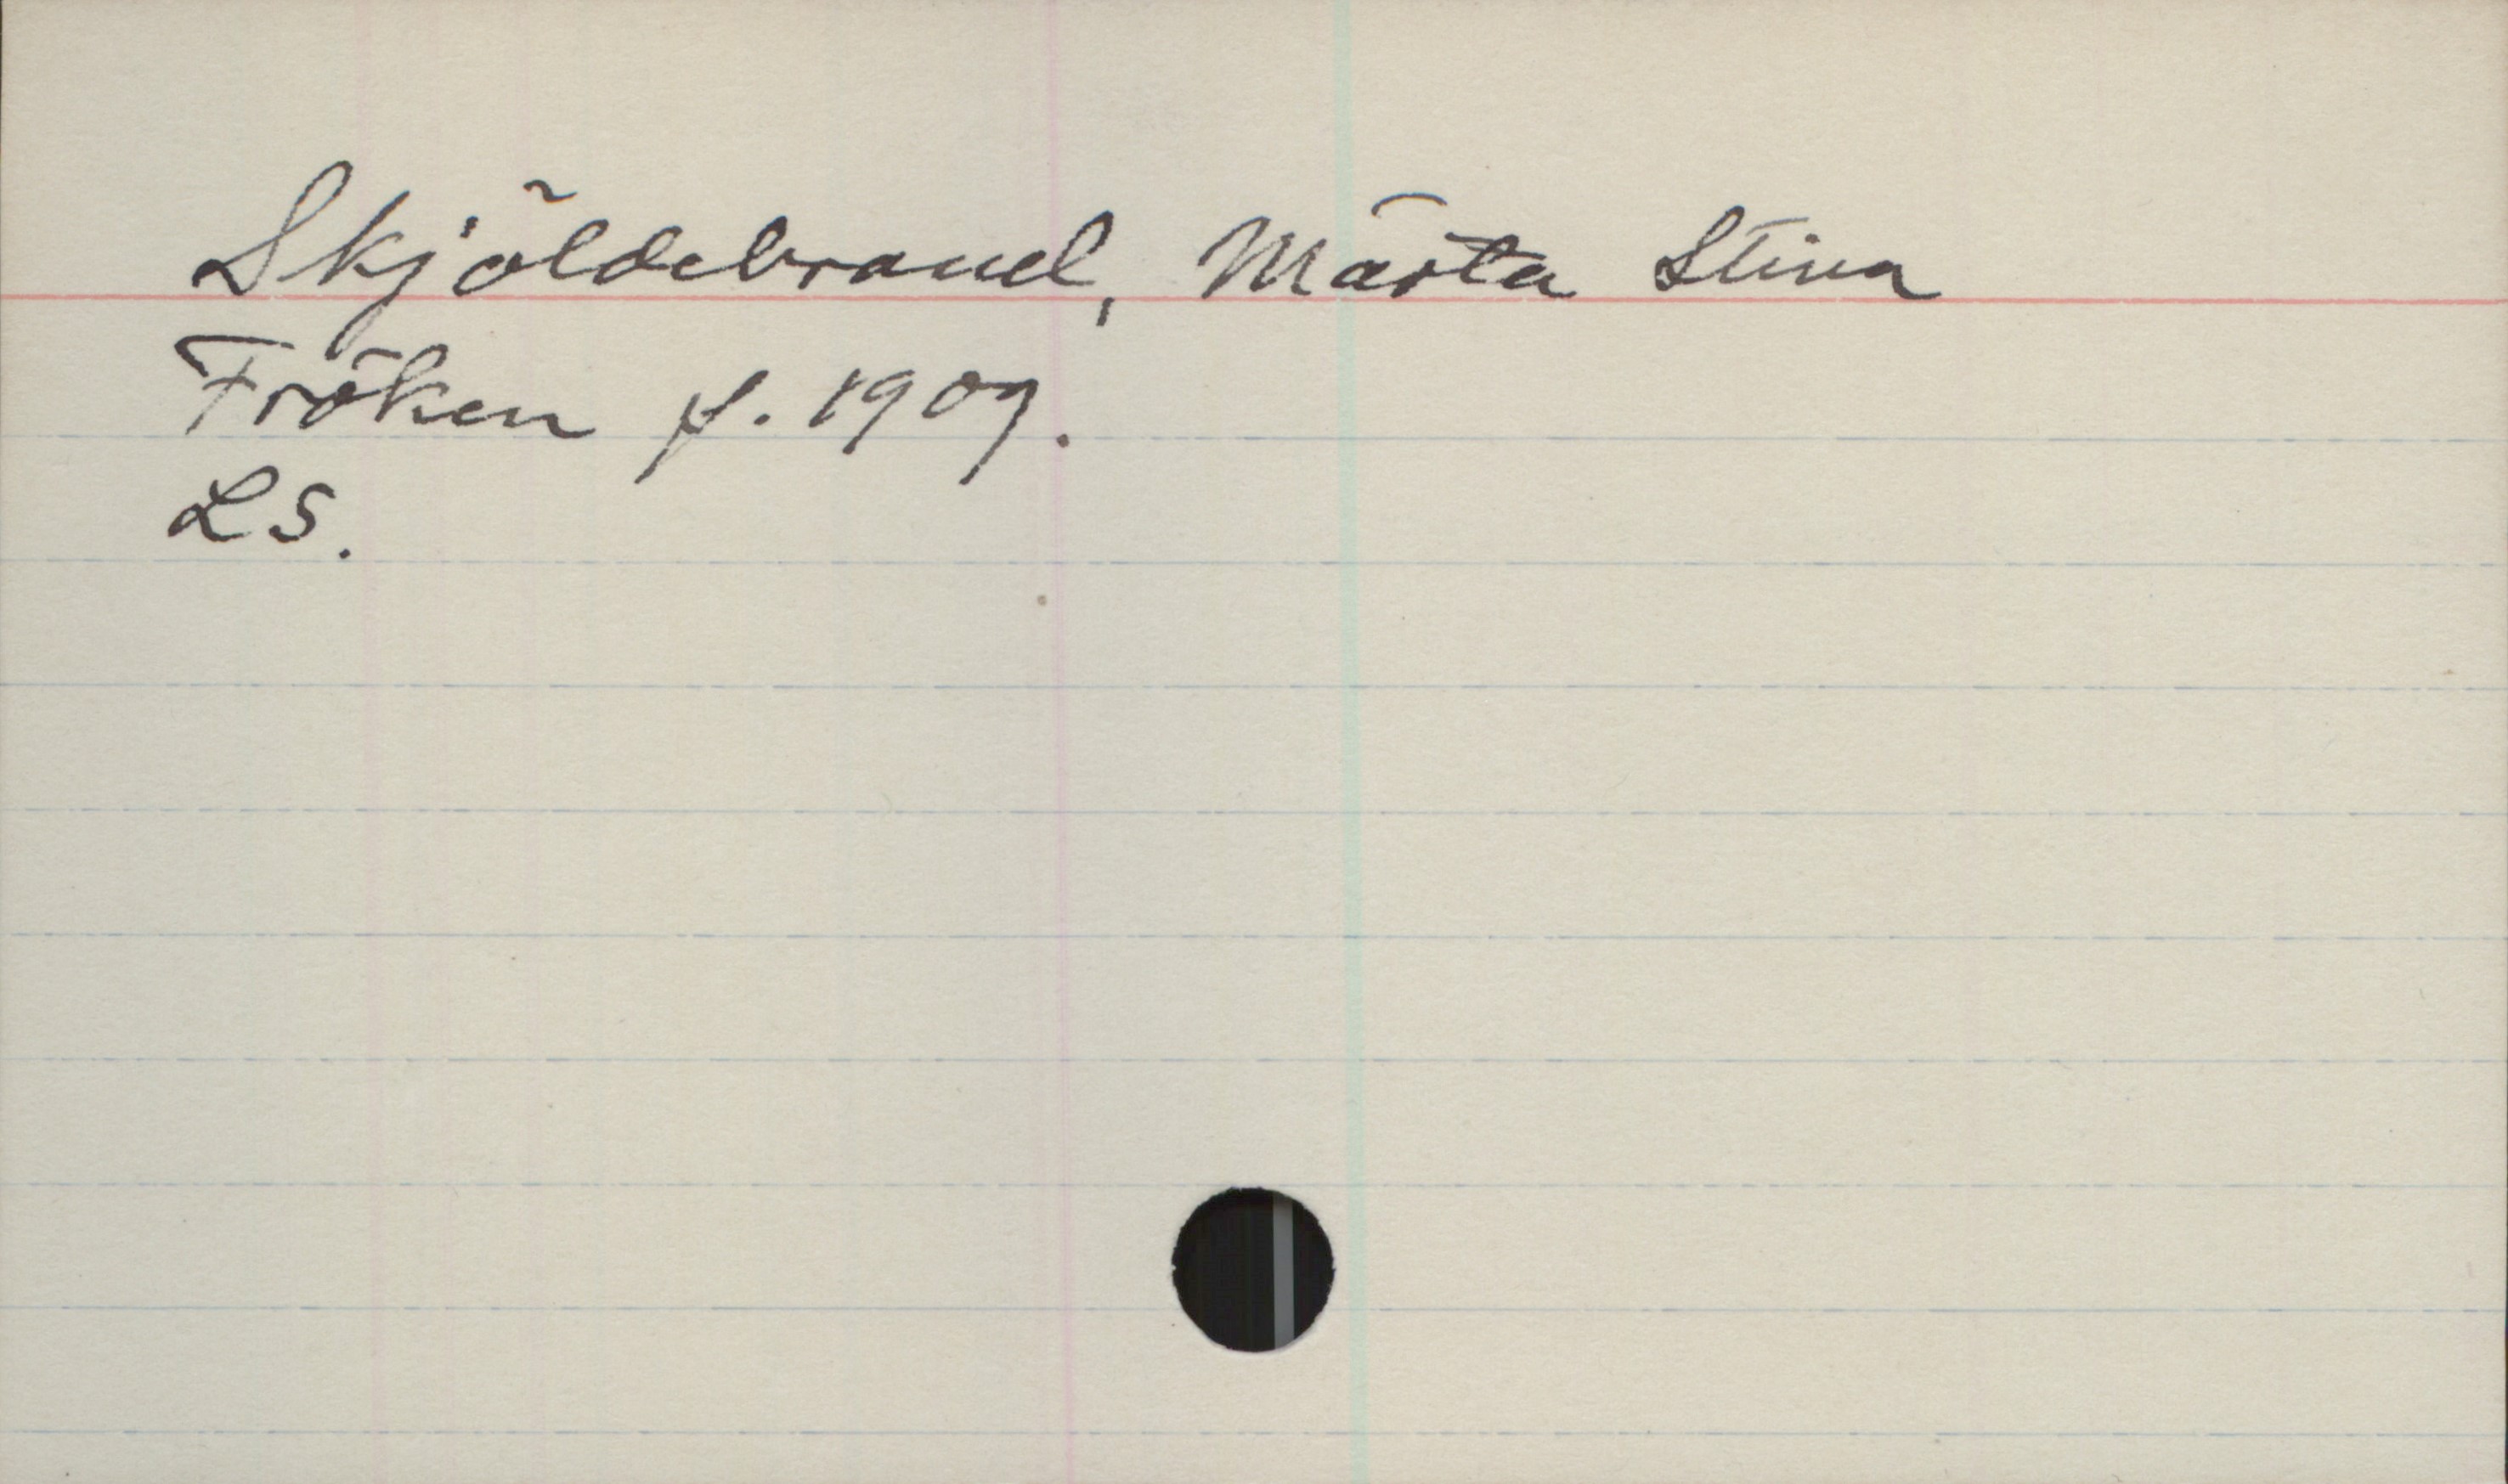 Skjöldebrand, Märta Stina
Fröken f. 1907.
LS.